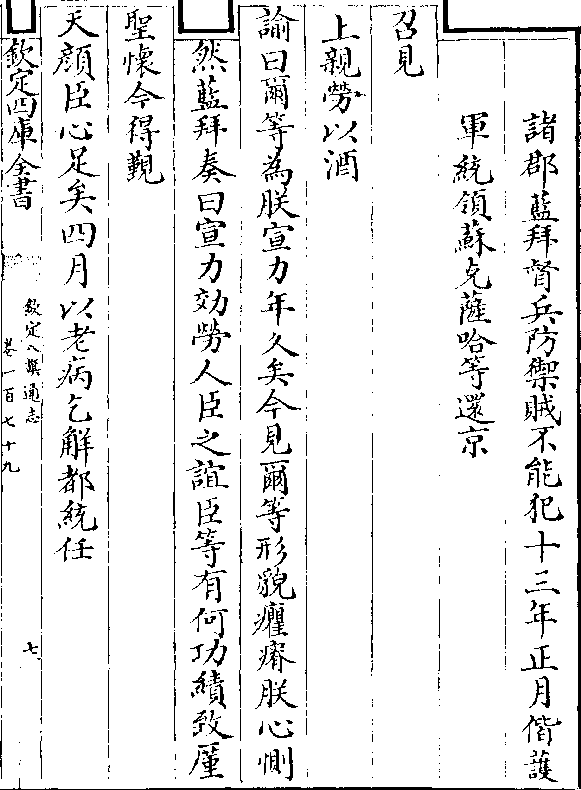 諸郡藍拜督兵防禦賊不能犯十三年正月偕護
軍統領蘇克薩哈等還京
召見
上親勞以酒
諭曰爾等為朕宣力年久矣今見爾等形貌癯瘠朕心惻
然藍拜奏曰宣力効勞人臣之誼臣等有何功績致厪
聖懷今得覲
天顔臣心足矣四月以老病乞解都統任
欽定四庫全書
欽定八旗通志
卷一百七十九
七